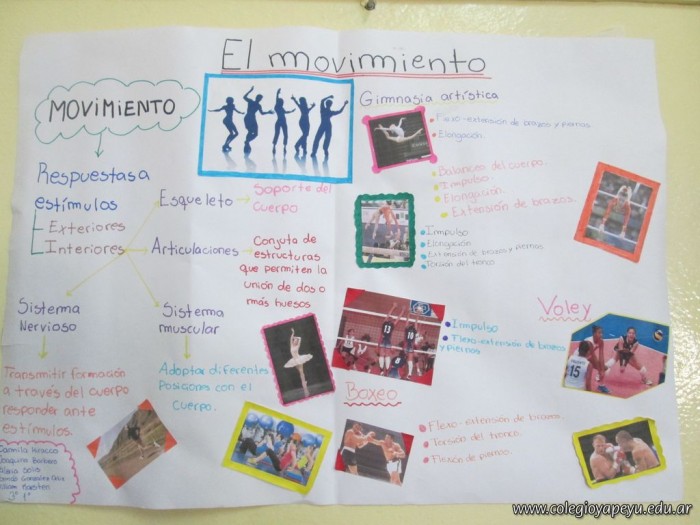 El movimiento
MOVIMIENTO
Respuestas a
estímulos
Exteriores
Interiores
Esqueleto
Soporte del
Cuerpo
Articulaciones
Conjuta de
estructuras
que permiten la
unión de dos o
más huesos
Sistema
Nervioso
Sistema
muscular
Transmitir formación
a través del cuerpo
responder ante
estímulos.
Adoptar diferentes
Posiciones con el
Cuerpo.
3° 1°
Gimnasia artística
Flexo-extensión de brazos y piernas.
Elongación.
Balanceo del cuerpo.
Impulso.
Elongación.
Extensión de brazos.
Impulso
Elongación
Extensión de brazos y piernas.
Torsión del tronco.
Voley
Impulso
Flexo-extensión de brazos
y piernas
13
10
15
Boxeo
Flexo-extensión de brazos.
Torsión del tronco.
Flexión de piernas.
www.colegioyapeyu.edu.ar